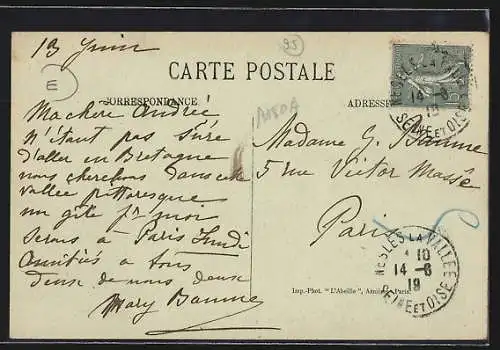 13 Juin
95
CARTE POSTALE
CORRESPONDANCE
ADRESSE
Ma chère Andrée
N'étant pas sûre
d'aller en Bretagne
nous cherchons dans cette
vallée pittoresque
un gîte pr moi
Serons à Paris lundi
Amitiés à tous
deux de nous deux
Mary Bonnue
Madame G. Bonnue
5 rue Victor Massé
Paris
NESLES LA VALLEE
14 - 6
19
SEINE ET OISE
NESLES LA VALLEE
10
14 - 6
19
SEINE ET OISE
Imp.-Phot. "L'Abeille", Paris